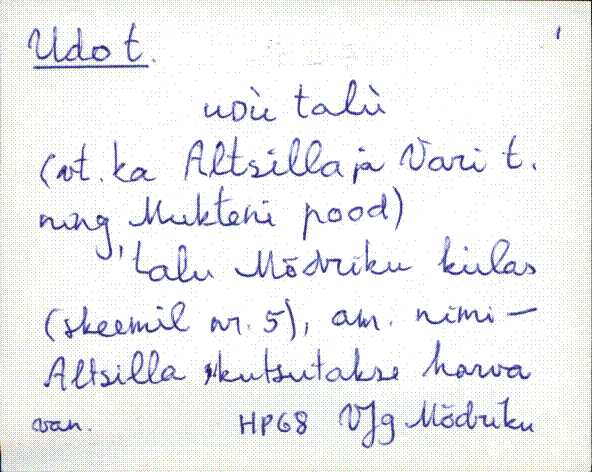 Udo t.
uDù talù
(vt. ka Altsilla ja Vari t.
ning Mukteni pood)
Talu Mõdriku külas
(skeemil nr. 5), am. nimi –
Altsilla, kutsutakse harva
van. HP68 VJg Mõdriku